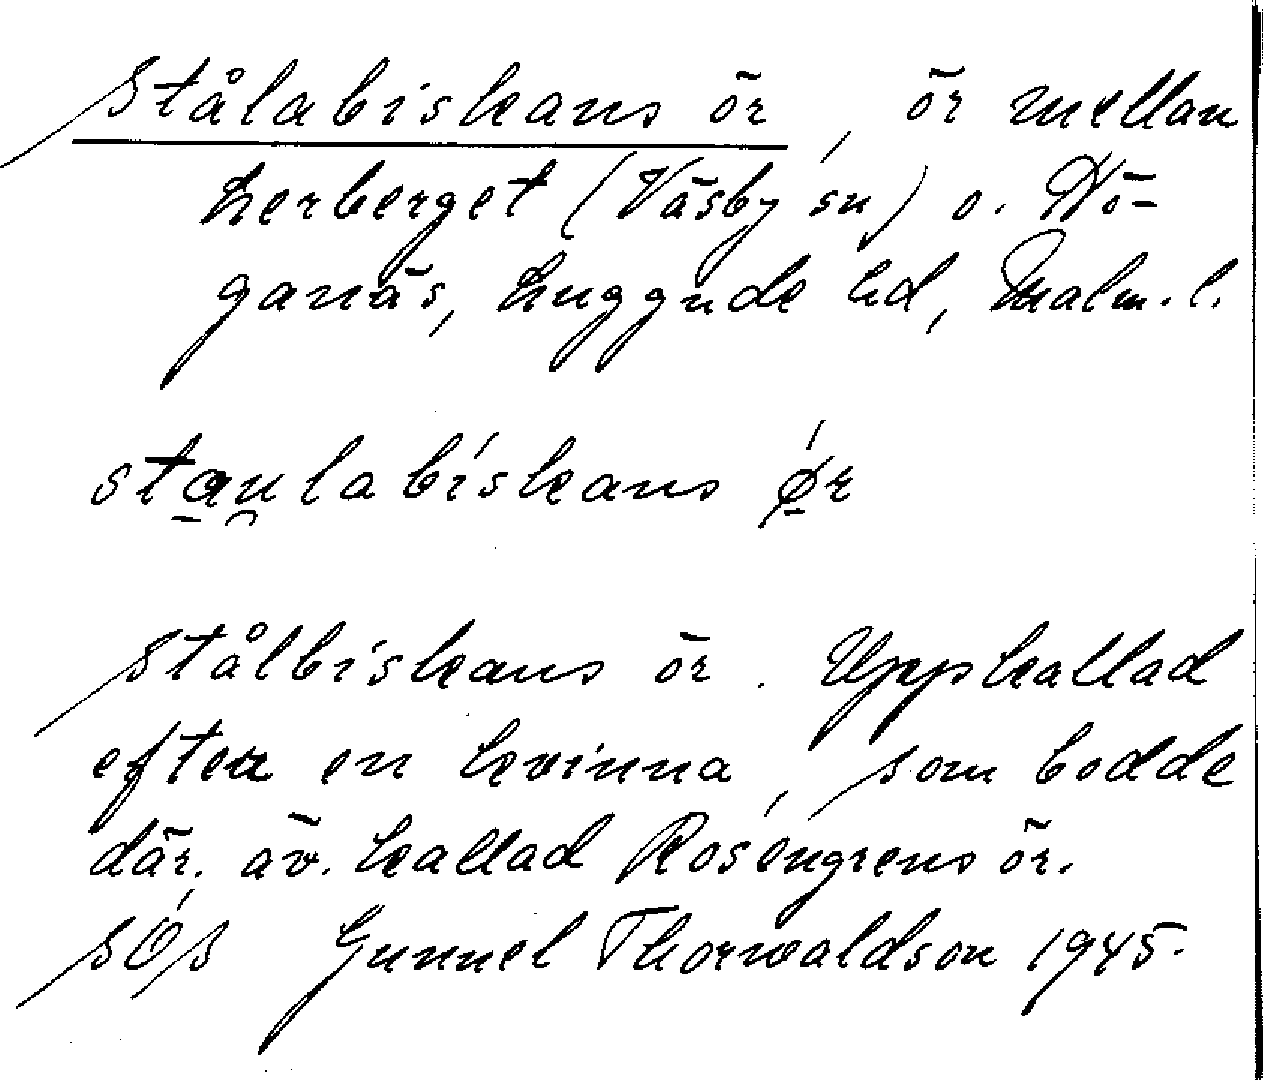 Stålabiskans ör, ör mellan
Lerberget (Väsby sn) o. Hö-
ganäs, Luggude hd, Malm. l.
staulabískans ǿr
Stålbiskans ör. Uppkallad
efter en kvinna, som bodde
där. äv. kallad Rosengrens ör.
SOS Gunnel Thorwaldson 1945.